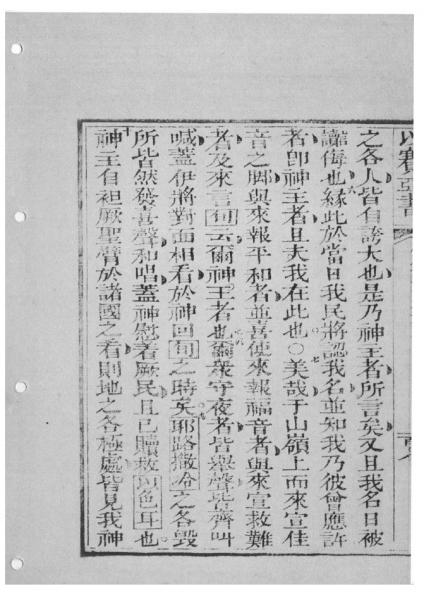 以賽亞書
之各人皆自誇大也是乃神主者所言矣又且我名日被
讟侮也緣此於當日我民將認我名並知我乃彼曾應許
者卽神主者且夫我在此也○美哉于山嶺上而來宣佳
音之脚與來報平和者並善使來報福音者與來宣救難
者及來言旬云爾神王者也爾衆守夜者皆舉聲皆齊叫
喊蓋伊將對面相看於神回旬之時矣耶路撒冷之各毀
所皆然發喜聲和唱蓋神慰著厥民且已贖救以色耳也
神主自袒厥聖臂於諸國之看則地之各極處皆見我神